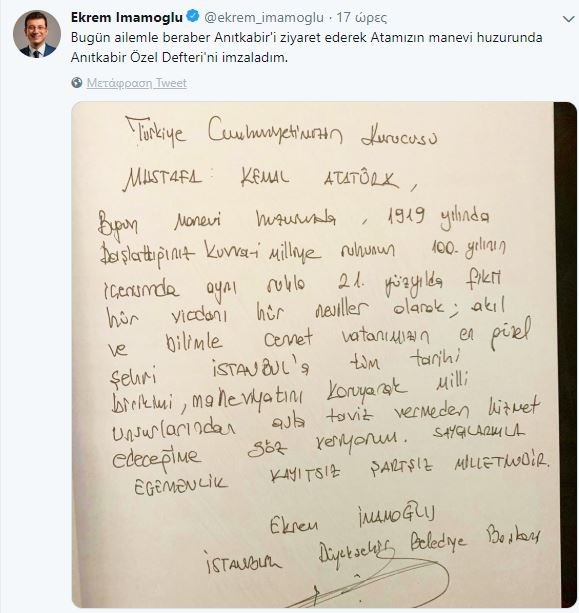 Ekrem Imamoglu @ekrem_imamoglu · 17 ώρες
Bugün ailemle beraber Anıtkabir'i ziyaret ederek Atamızın manevi huzurunda
Anıtkabir Özel Defteri'ni imzaladım.
Μετάφραση Tweet
Türkiye Cumhuriyetimizin Kurucusu
MUSTAFA KEMAL ATATÜRK,
Bugün manevi huzurunda, 1919 yılında
başlattığınız Kuvva-i Milliye ruhunun 100. yılının
içerisinde aynı ruhla 21. yüzyılda fikri
hür vicdanı hür nesiller olarak; akıl
ve bilimle cennet vatanımızın en güzel
şehri İSTANBUL'a tüm tarihi
birikimi, maneviyatını koruyarak milli
unsurlarından asla taviz vermeden hizmet
edeceğime söz veriyorum. SAYGILARIMLA
EGEMENLİK KAYITSIZ ŞARTSIZ MİLLETİNDİR.
Ekrem İMAMOĞLU
İSTANBUL Büyükşehir Belediye Başkanı